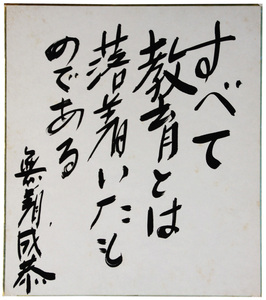 すべて
教育とは
落着いたも
のである
無着成恭